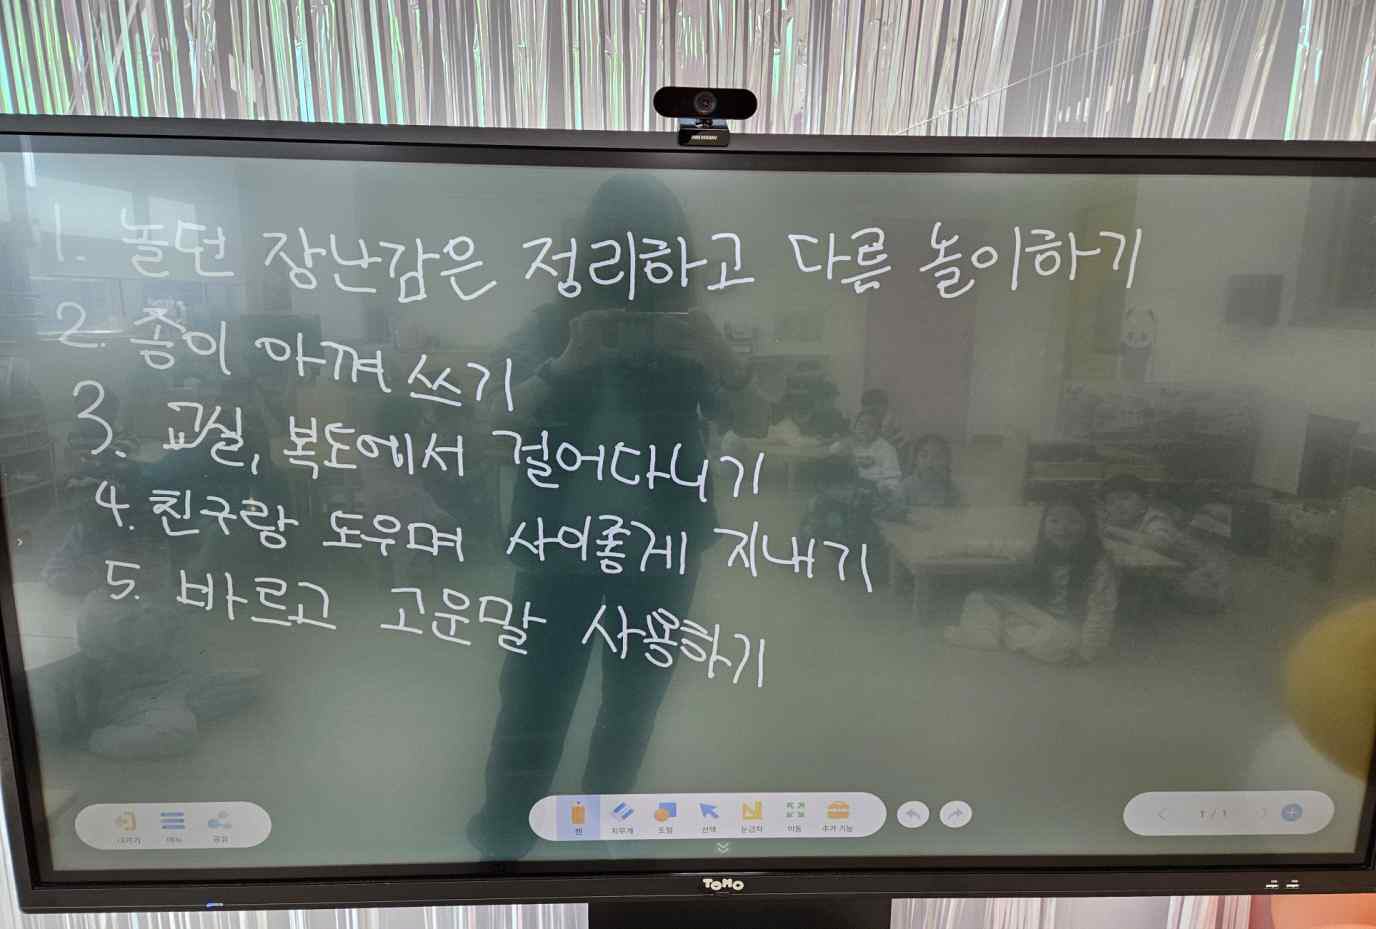 HIKVISION
1. 놀던 장난감은 정리하고 다른 놀이하기
2. 종이 아껴 쓰기
3. 교실, 복도에서 걸어다니기
4. 친구랑 도우며 사이좋게 지내기
5. 바르고 고운말 사용하기
나가기 메뉴 공유 펜 지우개 도형 선택 눈금자 이동 추가 기능 1 / 1
TOMO